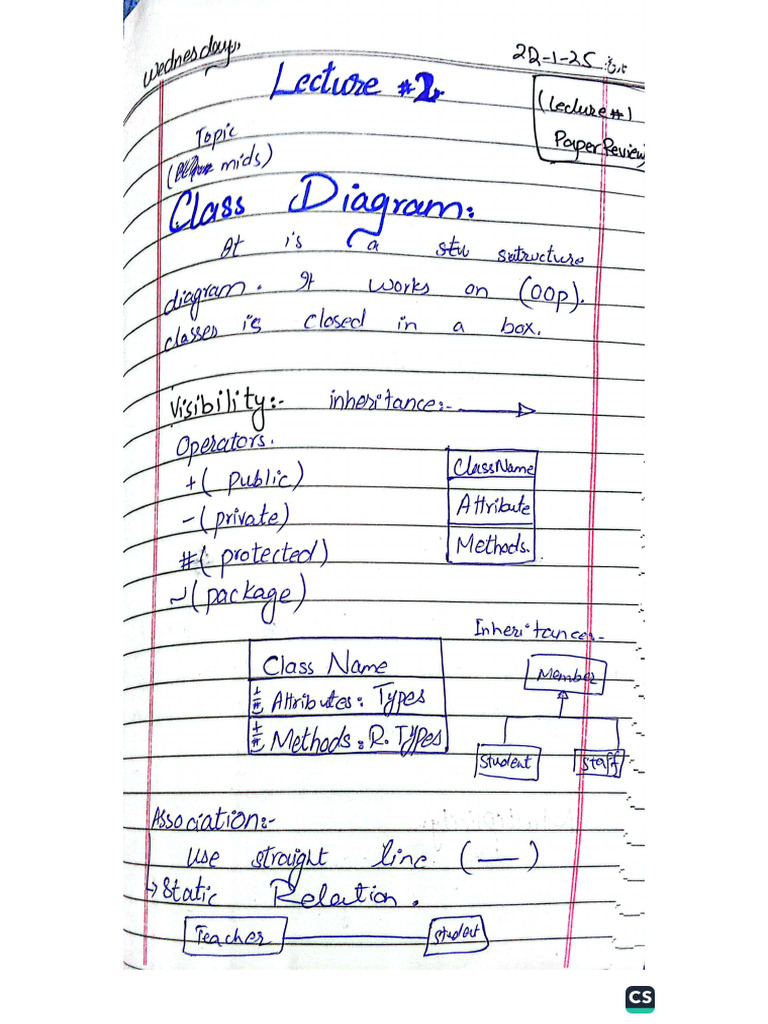 Wednesday,
22-1-25
Lecture #2.
(Lecture #1
Paper Review)
Topic
(mids)
Class Diagram:
It is a structure
diagram. It works on (OOP).
classes is closed in a box.
Visibility:- inheritance:-
Operators.
+( public)
-(private)
#( protected)
~(package)
ClassName
Attribute
Methods.
Inheritance:-
Member
Student
Staff
Class Name
Attributes: Types
Methods: R. Types
Association:-
Use straight line (—)
→Static Relation.
Teacher
Student
CS